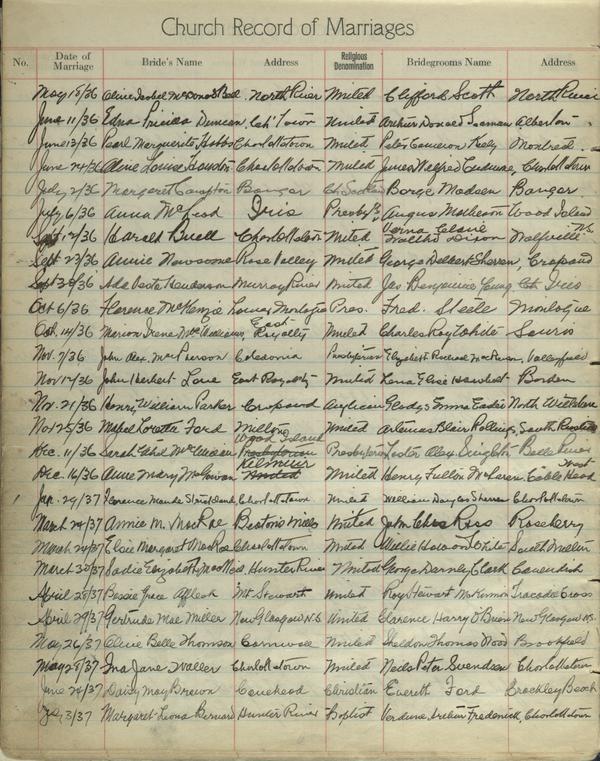 Church Record of Marriages
No. Date of Marriage Bride's Name Address Religious Denomination Bridegrooms Name Address
May 18/36 Olive Isabel North River United Clifford Scott North River
June 11/36 Edna Duncan Ch'Town United Arthur Donald Seaman Alberton
June 13/36 Pearl Marguerite Hobbs Charlottetown United Peter Cameron Kelly Montreal
June 24/36 Aline Louise Charlottetown United James Wilfred Charlottetown
July 2/36 Margaret Compton Bangor Borge Madsen Bangor
July 6/36 Anna McLeod Iris Presby Angus Matheson Wood Island
Sept 12/36 Harald Buell Charlottetown United Verna Claire Dixon Wolfville N.S.
Sept 23/36 Annie Rose Valley United George Delbert Sherren Crapaud
Sept 30/36 Ada Henderson Murray River United Jas Benjamine
Oct 6/36 Florence McKenzie Lower Montague Pres. Fred. Steele Montague
Oct. 14/36 Marion Irene East Royalty United Charles Roy White Souris
Nov. 7/36 John Alex. MacPherson Caledonia Presbyterian Elizabeth Valleyfield
Nov 17/36 John Herbert Love East Royalty United Lena Elsie Borden
Nov. 21/36 Henry William Parker Crapaud Anglican Gladys Emma Eadie North Wiltshire
Nov 25/36 Mabel Loretta Ford Milton United Artemas Blair South
Dec. 11/36 Sarah Ethel Wood Island Presbyterian Presbyterian Lester Alex Belle River
Dec. 16/36 Anne Mary McGowan Kelmuir United United Henry Fulton McLaren Cable Head West
1 Jan. 29/37 Florence Maude Strickland Charlottetown United William Douglas Sherren Charlottetown
March 24/37 Annie M. MacRae Beaton's Mills United John Chas Ross Roseberry
March 24/37 Elsie Margaret MacRae Charlottetown United Willie White South Melville
March 30/37 Sadie Elizabeth MacNeil Hunter River United George Darnley Clark Cavendish
April 28/37 Bessie Grace Affleck Mt Stewart United Roy Stewart McKinnon Tracadie Cross
April 29/37 Gertrude Mae Miller New Glasgow N.S. United Clarence Harry O'Brien New Glasgow N.S.
May 26/37 Olive Belle Thomson Cornwall United Sheldon Thomas Wood Brookfield
May 28/37 Ina Jane Waller Charlottetown United Neils Peter Svendsen Charlottetown
June 24/37 Daisy May Brown Covehead Christian Everett Ford Brackley Beach
3/37 Margaret Leona Bernard Hunter River Baptist Verdune Arthur Frederick, Charlottetown